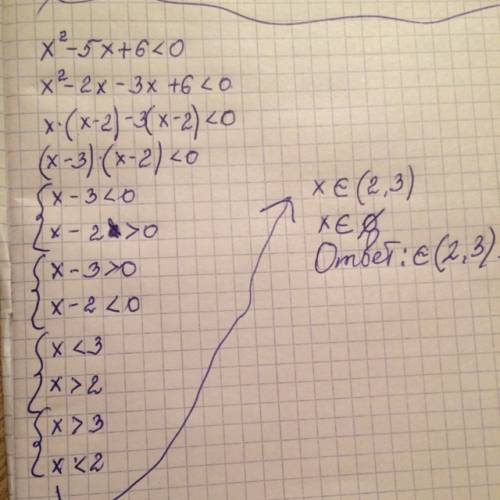 x²-5x+6<0
x²-2x-3x+6<0
x·(x-2)-3(x-2)<0
(x-3)·(x-2)<0
{x-3<0
x-2>0
{x-3>0
x-2<0
{x<3
x>2
{x>3
x<2
x∈(2,3)
x∈∅
Ответ:∈(2,3).